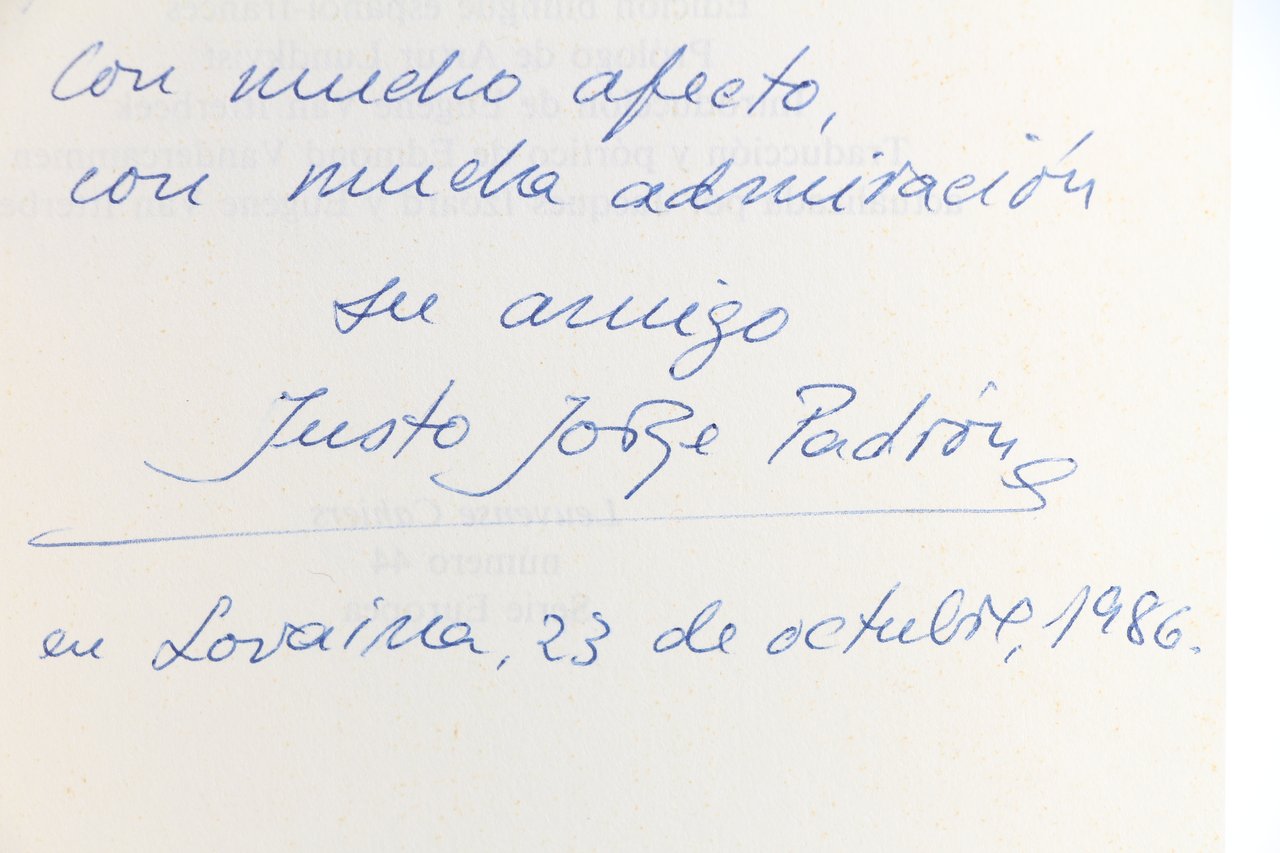 Con mucho afecto,
con mucha admiración
su amigo
Justo Jorge Padrón
en Lovaina, 23 de octubre, 1986.
Edición bilingüe español-francés
Prólogo de Artur Lundkvist
Introducción de Eugène Van Itterbeek
Traducción y pórtico de Edmond Vandercammen
por Jacques Izoard y Eugène Van Itterbe
Leuvense Cahiers
numero 44
Serie Europea